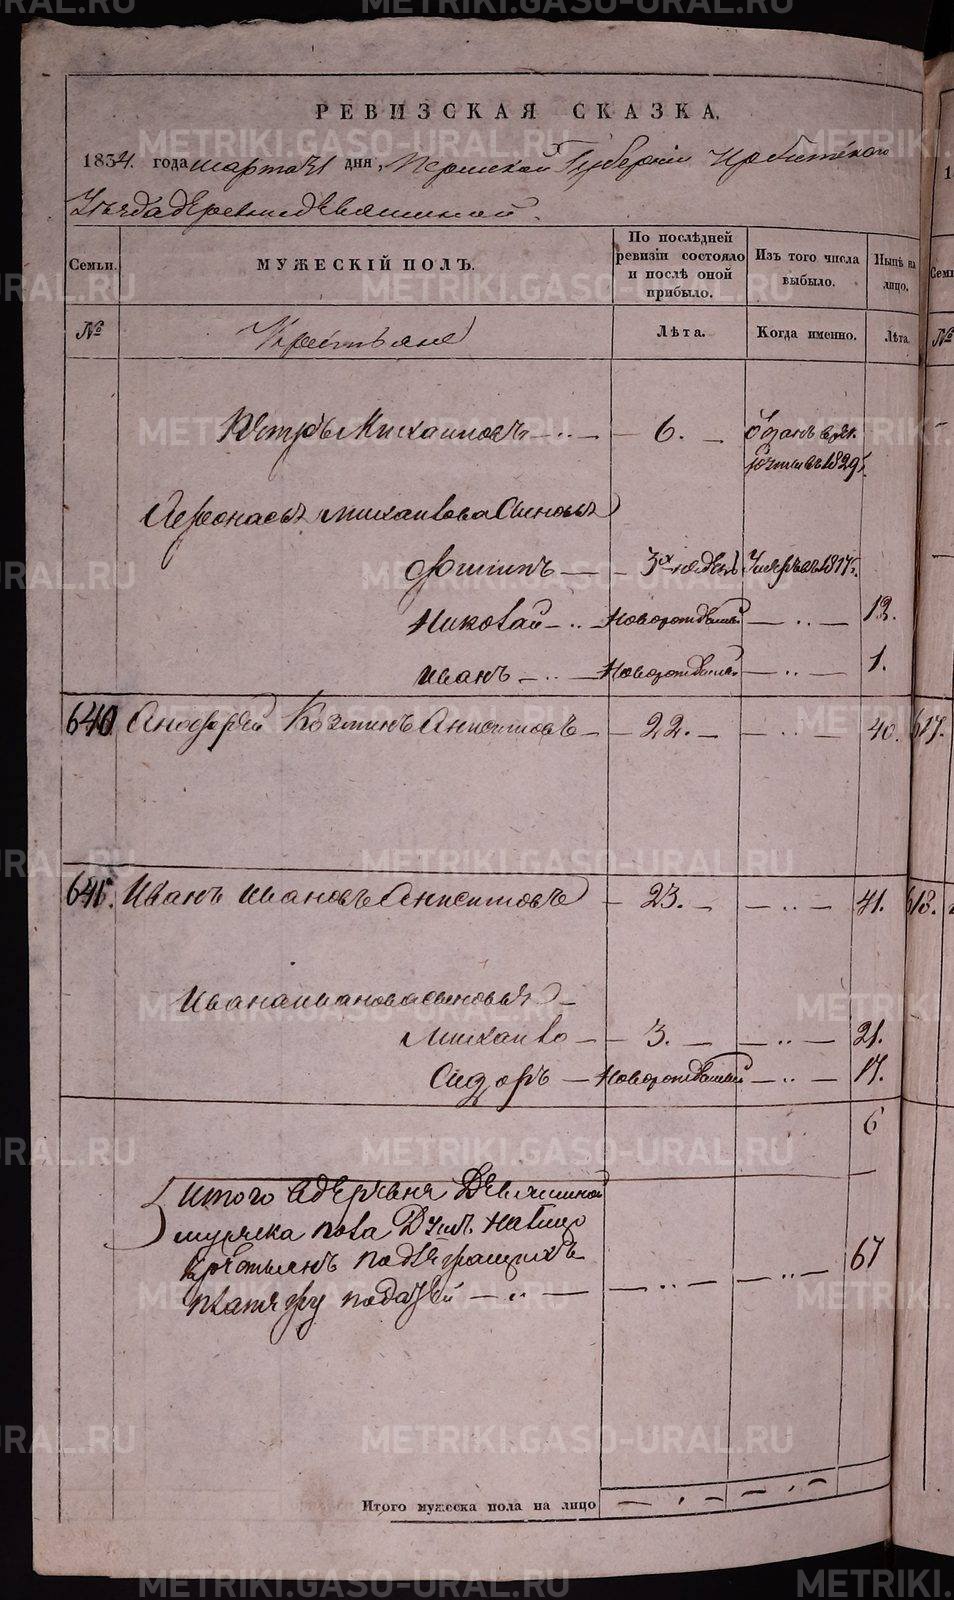 РЕВИЗСКАЯ СКАЗКА.
1834 года марта 31 дня, Пермской Губернiи Ирбитскаго
Уезда деревни девяшиной.
Семьи.
МУЖЕСКIЙ ПОЛЪ.
По послѣдней ревизiи состояло и послѣ оной прибыло.
Изъ того числа выбыло.
Нынѣ на лицо.
Семьи
№
Крестьяне
Лѣта.
Когда именно.
Лѣта.
№
Петръ Михаиловъ — 6. — Зданъ в рекруты въ 1829
Афонасья михаилова Сыновья
Филипъ — 3х недель Умеръ въ 1817г.
Николай — Новорожденный — 12.
иванъ — Новорожденный — 1.
640 Анофрей Козминъ Анисимовъ — 22. — 40. 617.
641. Иванъ ивановъ Анисимовъ — 23. — 41. 618.
Ивана иванова сыновья —
михаило — 3. — 21.
Сидоръ — Новорожденный — 17.
6
итого в деревне Девяшиной
мужска пола душъ на лицо
крестьянъ подлежащихъ
платежу податей — 67
Итого мужеска пола на лицо
METRIKI.GASO-URAL.RU